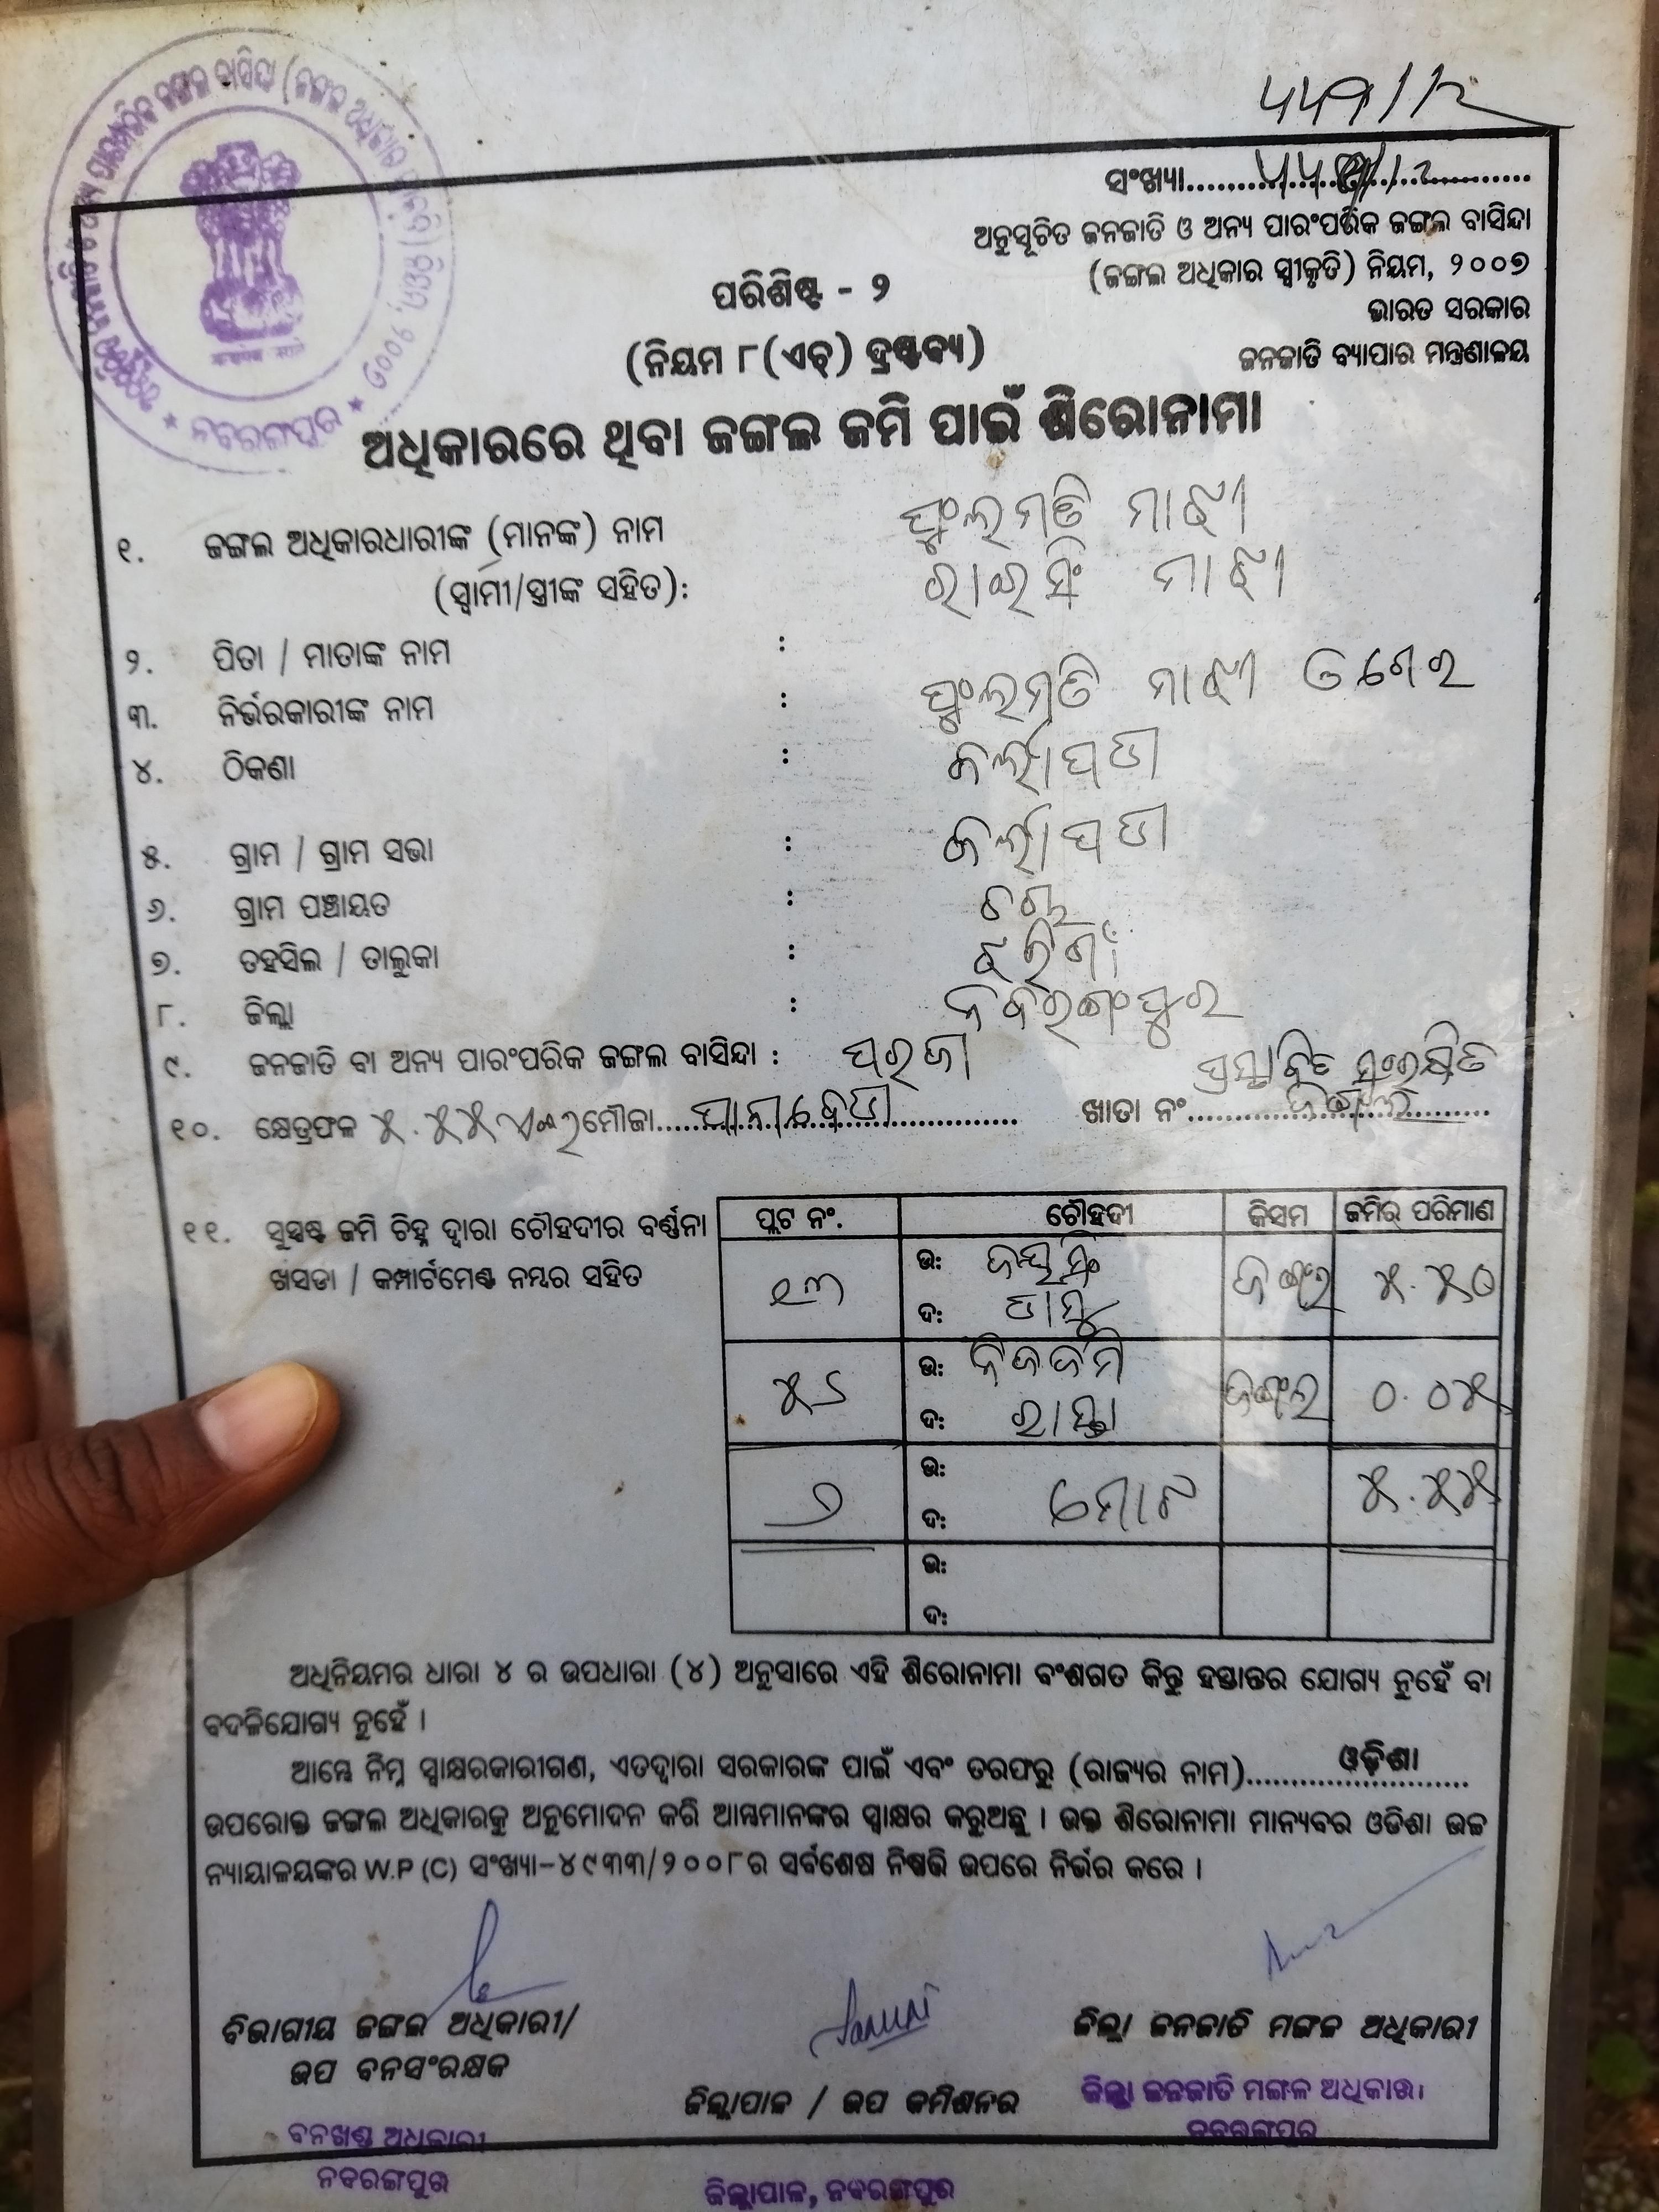 ସଂଖ୍ୟା
ଅନୁସୂଚିତ ଜନଜାତି ଓ ଅନ୍ୟ ପାରଂପରିକ ଜଙ୍ଗଲ ବାସିନ୍ଦା
(ଜଙ୍ଗଲ ଅଧିକାର ସ୍ୱୀକୃତି) ନିୟମ, ୨୦୦୭
ଭାରତ ସରକାର
ଜନଜାତି ବ୍ୟାପାର ମନ୍ତ୍ରଣାଳୟ
ପରିଶିଷ୍ଟ - ୨
(ନିୟମ ୮(ଏଚ୍) ଦ୍ରଷ୍ଟବ୍ୟ)
ଅଧିକାରରେ ଥିବା ଜଙ୍ଗଲ ଜମି ପାଇଁ ଶିରୋନାମା
୧. ଜଙ୍ଗଲ ଅଧିକାରଧାରୀଙ୍କ (ମାନଙ୍କ) ନାମ ଫୁଲମତି ମାଝୀ
(ସ୍ୱାମୀ/ସ୍ତ୍ରୀଙ୍କ ସହିତ): ରାଇସିଂ ମାଝୀ
୨. ପିତା / ମାତାଙ୍କ ନାମ :
୩. ନିର୍ଭରକାରୀଙ୍କ ନାମ : ଫୁଲମତି ମାଝୀ
୪. ଠିକଣା :
୫. ଗ୍ରାମ / ଗ୍ରାମ ସଭା :
୬. ଗ୍ରାମ ପଞ୍ଚାୟତ :
୭. ତହସିଲ / ତାଲୁକା : ଝରିଗାଁ
୮. ଜିଲ୍ଲା : ନବରଙ୍ଗପୁର
୯. ଜନଜାତି ବା ଅନ୍ୟ ପାରଂପରିକ ଜଙ୍ଗଲ ବାସିନ୍ଦା : ପରଜା
୧୦. କ୍ଷେତ୍ରଫଳ ୫.୫୫ ମୌଜା ଖାତା ନଂ ପ୍ରସ୍ତାବିତ ସଂରକ୍ଷିତ ଜଙ୍ଗଲ
୧୧. ସୁସ୍ପଷ୍ଟ ଜମି ଚିହ୍ନ ଦ୍ୱାରା ଚୌହଦୀର ବର୍ଣ୍ଣନା
ଖସଡା / କମ୍ପାର୍ଟମେଣ୍ଟ ନମ୍ବର ସହିତ
ପ୍ଲଟ ନଂ. ଚୌହଦୀ କିସମ ଜମିର ପରିମାଣ
୧୩ ଉ: ଜୟସିଂ ଜଙ୍ଗଲ ୫.୫୦
ଦ: ଡାମୁ
ଉ: ନିଜଜମି ଜଙ୍ଗଲ ୦.୦୫
ଦ: ରାସ୍ତା
୨ ଉ: ମୋଟ ୫.୫୫
ଦ:
ଉ:
ଦ:
ଅଧିନିୟମର ଧାରା ୪ ର ଉପଧାରା (୪) ଅନୁସାରେ ଏହି ଶିରୋନାମା ବଂଶଗତ କିନ୍ତୁ ହସ୍ତାନ୍ତର ଯୋଗ୍ୟ ନୁହେଁ ବା
ବଦଳିଯୋଗ୍ୟ ନୁହେଁ ।
ଆମ୍ଭେ ନିମ୍ନ ସ୍ୱାକ୍ଷରକାରୀଗଣ, ଏତଦ୍ୱାରା ସରକାରଙ୍କ ପାଇଁ ଏବଂ ତରଫରୁ (ରାଜ୍ୟର ନାମ) ଓଡ଼ିଶା
ଉପରୋକ୍ତ ଜଙ୍ଗଲ ଅଧିକାରକୁ ଅନୁମୋଦନ କରି ଆମ୍ଭମାନଙ୍କର ସ୍ୱାକ୍ଷର କରୁଅଛୁ । ଉକ୍ତ ଶିରୋନାମା ମାନ୍ୟବର ଓଡିଶା ଉଚ୍ଚ
ନ୍ୟାୟାଳୟଙ୍କର W.P (C) ସଂଖ୍ୟା-୪୯୩୩/୨୦୦୮ର ସର୍ବଶେଷ ନିଷ୍ପତ୍ତି ଉପରେ ନିର୍ଭର କରେ ।
ବିଭାଗୀୟ ଜଙ୍ଗଲ ଅଧିକାରୀ/
ଉପ ବନସଂରକ୍ଷକ
ଜିଲ୍ଲାପାଳ / ଉପ କମିଶନର
ଜିଲ୍ଲା ଜନଜାତି ମଙ୍ଗଳ ଅଧିକାରୀ
ବନଖଣ୍ଡ ଅଧିକାରୀ
ନବରଙ୍ଗପୁର
ଜିଲ୍ଲାପାଳ, ନବରଙ୍ଗପୁର
ଜିଲ୍ଲା ଜନଜାତି ମଙ୍ଗଳ ଅଧିକାରୀ
ନବରଙ୍ଗପୁର